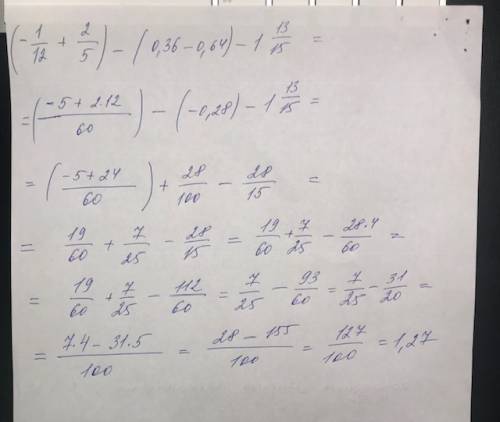 (-1/12 + 2/5) - (0,36 - 0,64) - 1 13/15 =
= ((-5 + 2.12)/60) - (-0,28) - 1 13/15 =
= ((-5 + 24)/60) + 28/100 - 28/15 =
= 19/60 + 7/25 - 28/15 = 19/60 + 7/25 - 28.4/60 =
= 19/60 + 7/25 - 112/60 = 7/25 - 93/60 = 7/25 - 31/20 =
= (7.4 - 31.5)/100 = (28 - 155)/100 = 127/100 = 1,27